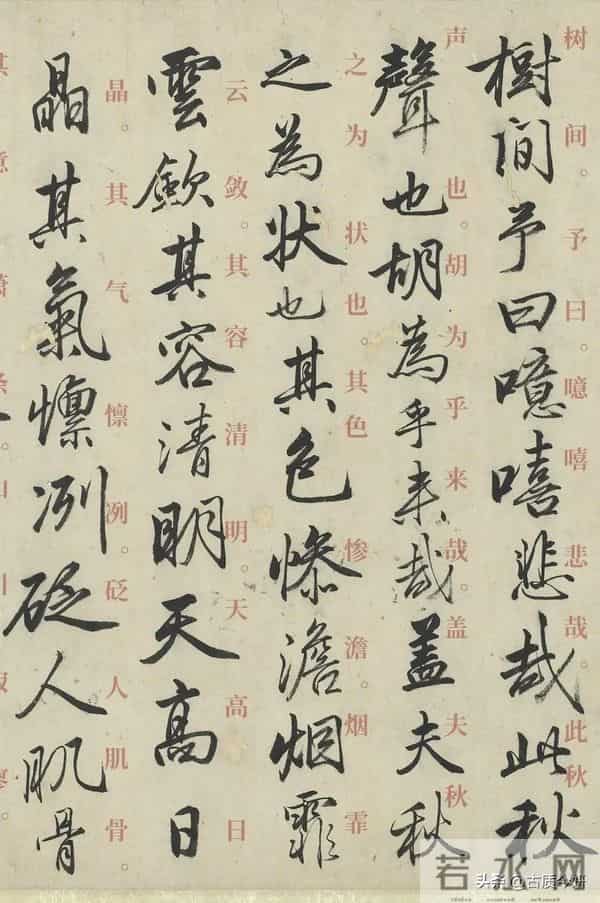 树间。予曰。噫嘻悲哉。此秋
樹間予曰噫嘻悲哉此秋
声也。胡为乎来哉。盖夫秋
聲也胡為乎来哉盖夫秋
之为状也。其色惨澹。烟霏
之為状也其色惨澹烟霏
云敛。其容清明。天高日
雲斂其容清明天高日
晶。其气懔冽。砭人肌骨
晶其氣懔冽砭人肌骨
若水网
头条 @古质今妍